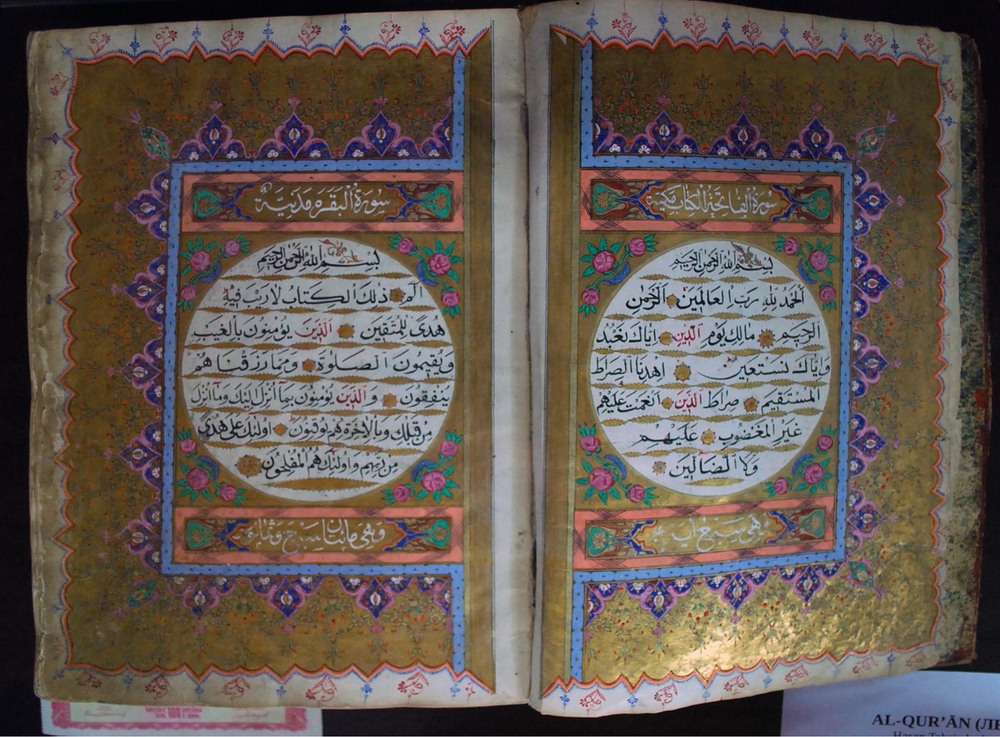 سورة الفاتحة الكتاب مكية
بسم الله الرحمن الرحيم
الحمد لله رب العالمين الرحمن
الرحيم مالك يوم الدين اياك نعبد
واياك نستعين اهدنا الصراط
المستقيم صراط الذين انعمت عليهم
غير المغضوب عليهم
ولا الضالين
سبع
سورة البقرة مدنية
بسم الله الرحمن الرحيم
الم ذلك الكتاب لا ريب فيه
هدى للمتقين الذين يؤمنون بالغيب
ويقيمون الصلوة ومما رزقناهم
ينفقون والذين يؤمنون بما انزل اليك وما انزل
من قبلك وبالاخرة هم يوقنون اولئك على هدى
من ربهم واولئك هم المفلحون
وهي مائتان سبع
100
AL-QUR'ĀN